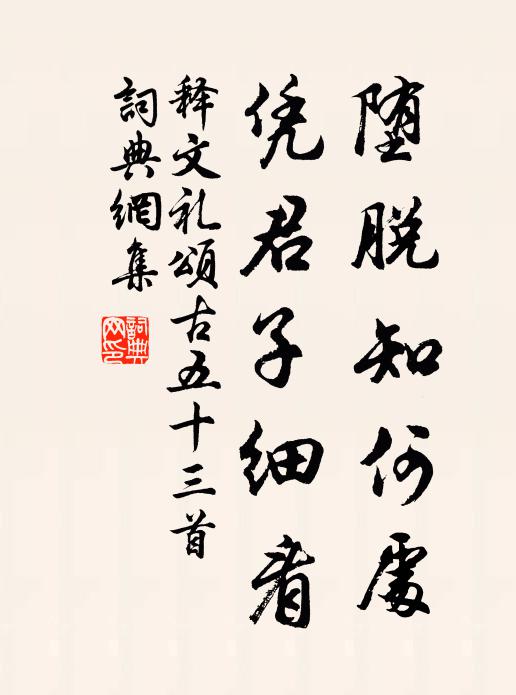 堕脱知何處
凭君子细看
释文礼頌古五十三首
詞典網集
詞典网印